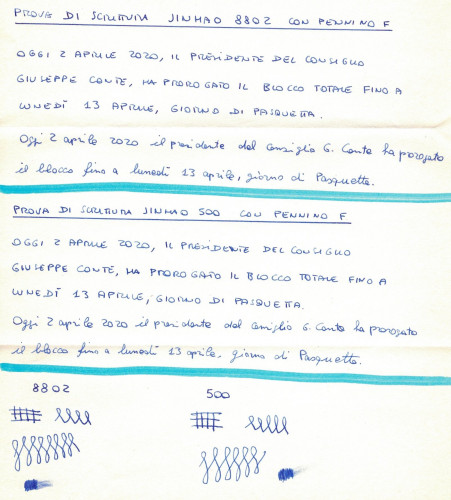 PROVA DI SCRITTURA JINHAO 8802 CON PENNINO F
OGGI 2 APRILE 2020, IL PRESIDENTE DEL CONSIGLIO
GIUSEPPE CONTE, HA PROROGATO IL BLOCCO TOTALE FINO A
LUNEDÌ 13 APRILE, GIORNO DI PASQUETTA.
Oggi 2 aprile 2020 il presidente del consiglio G. Conte ha prorogato
il blocco fino a lunedì 13 aprile, giorno di Pasquetta.
PROVA DI SCRITTURA JINHAO 500 CON PENNINO F
OGGI 2 APRILE 2020, IL PRESIDENTE DEL CONSIGLIO
GIUSEPPE CONTE, HA PROROGATO IL BLOCCO TOTALE FINO A
LUNEDÌ 13 APRILE, GIORNO DI PASQUETTA.
Oggi 2 aprile 2020 il presidente del consiglio G. Conte ha prorogato
il blocco fino a lunedì 13 aprile, giorno di Pasquetta.
8802
500